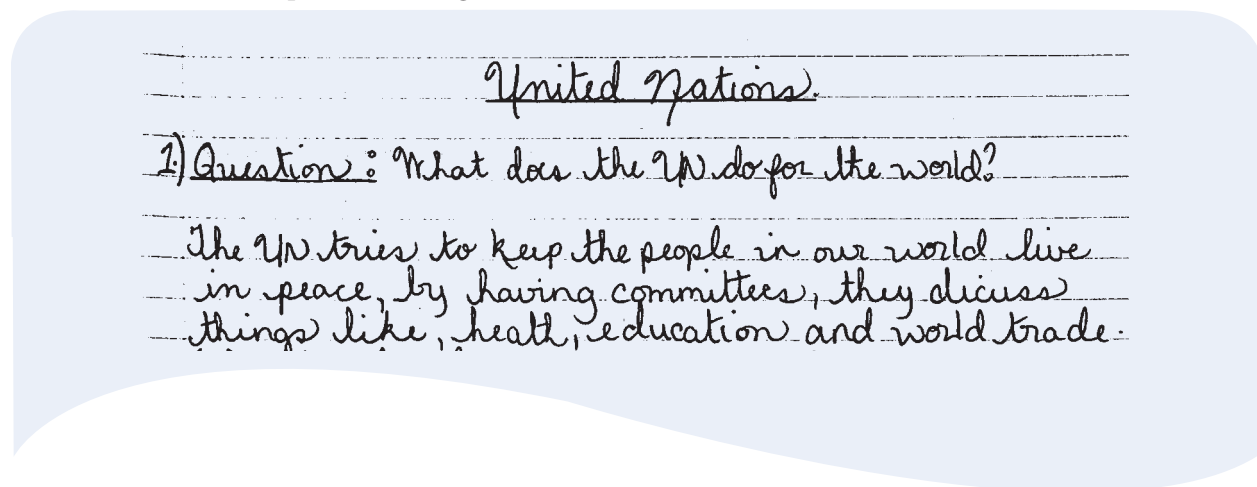 United Nations.
1.) Question: What does the UN do for the world?
The UN tries to keep the people in our world live
in peace, by having committees, they dicuss
things like, heath, education and world trade.